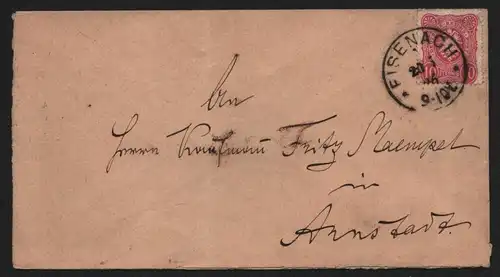 EISENACH
20 1
9-10V.
10 10
An
Herrn Kaufmann Fritz Maempel
in
Arnstadt.